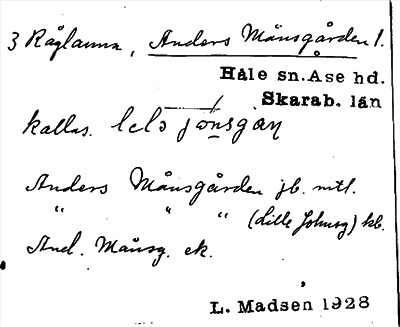 3 Råglanna, Anders Månsgården 1.
Håle sn. Åse hd.
Skarab. län
kallas. lelə jònsgan
Anders Månsgården jb. mtl.
" " " (Lille Johnsg) kb.
And. Månsg. ek.
L. Madsen 1928